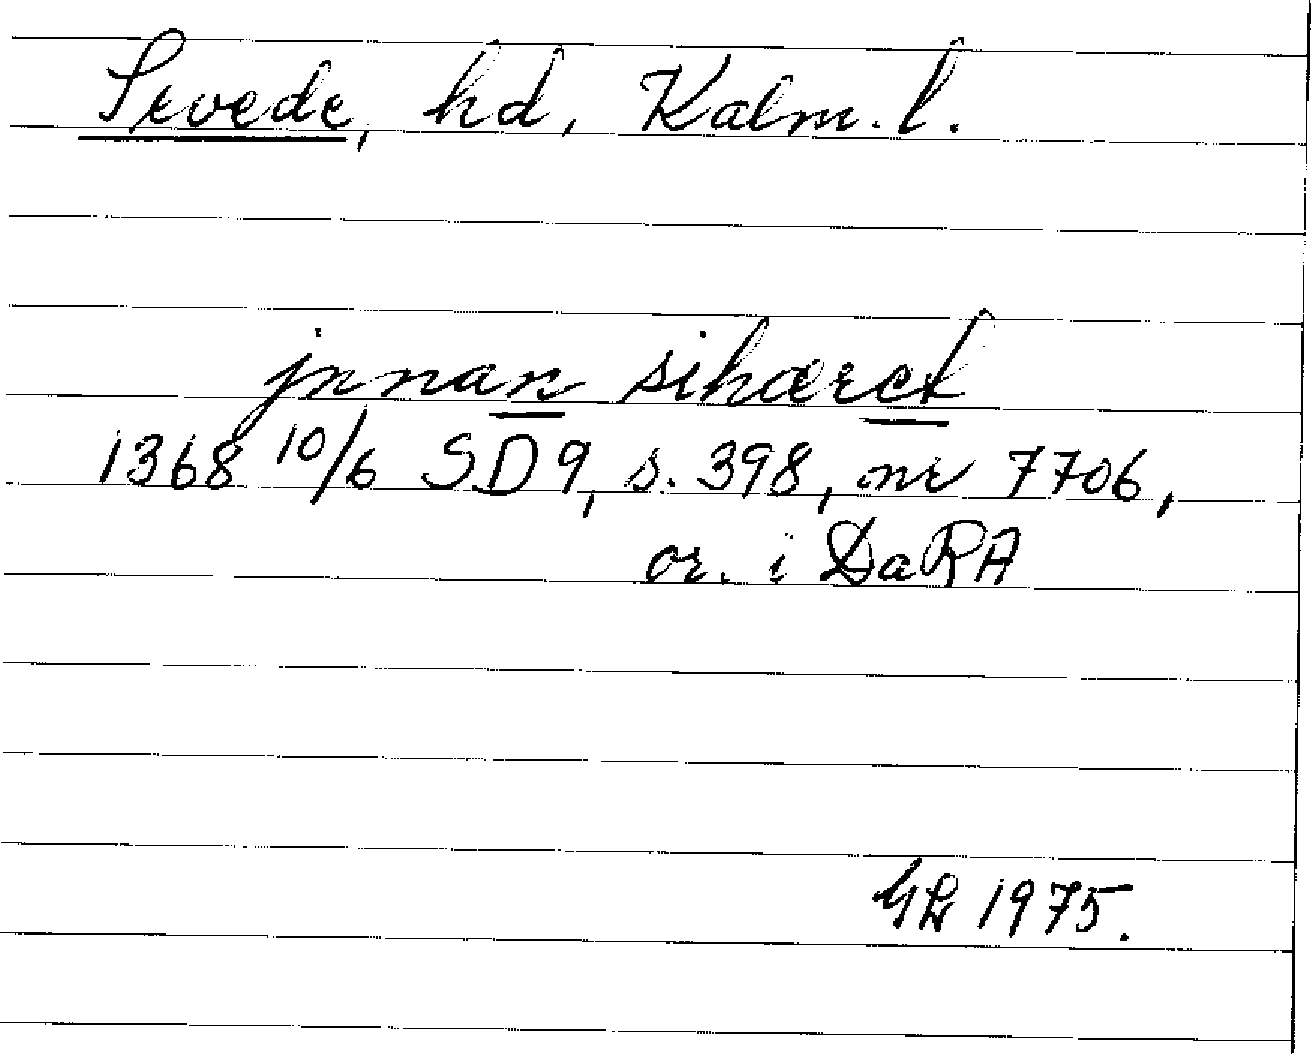 Sevede, hd, Kalm. l.
jnnan sihæret
1368 10/6 SD 9, s. 398, nr 7706,
or. i DaRA
1975.